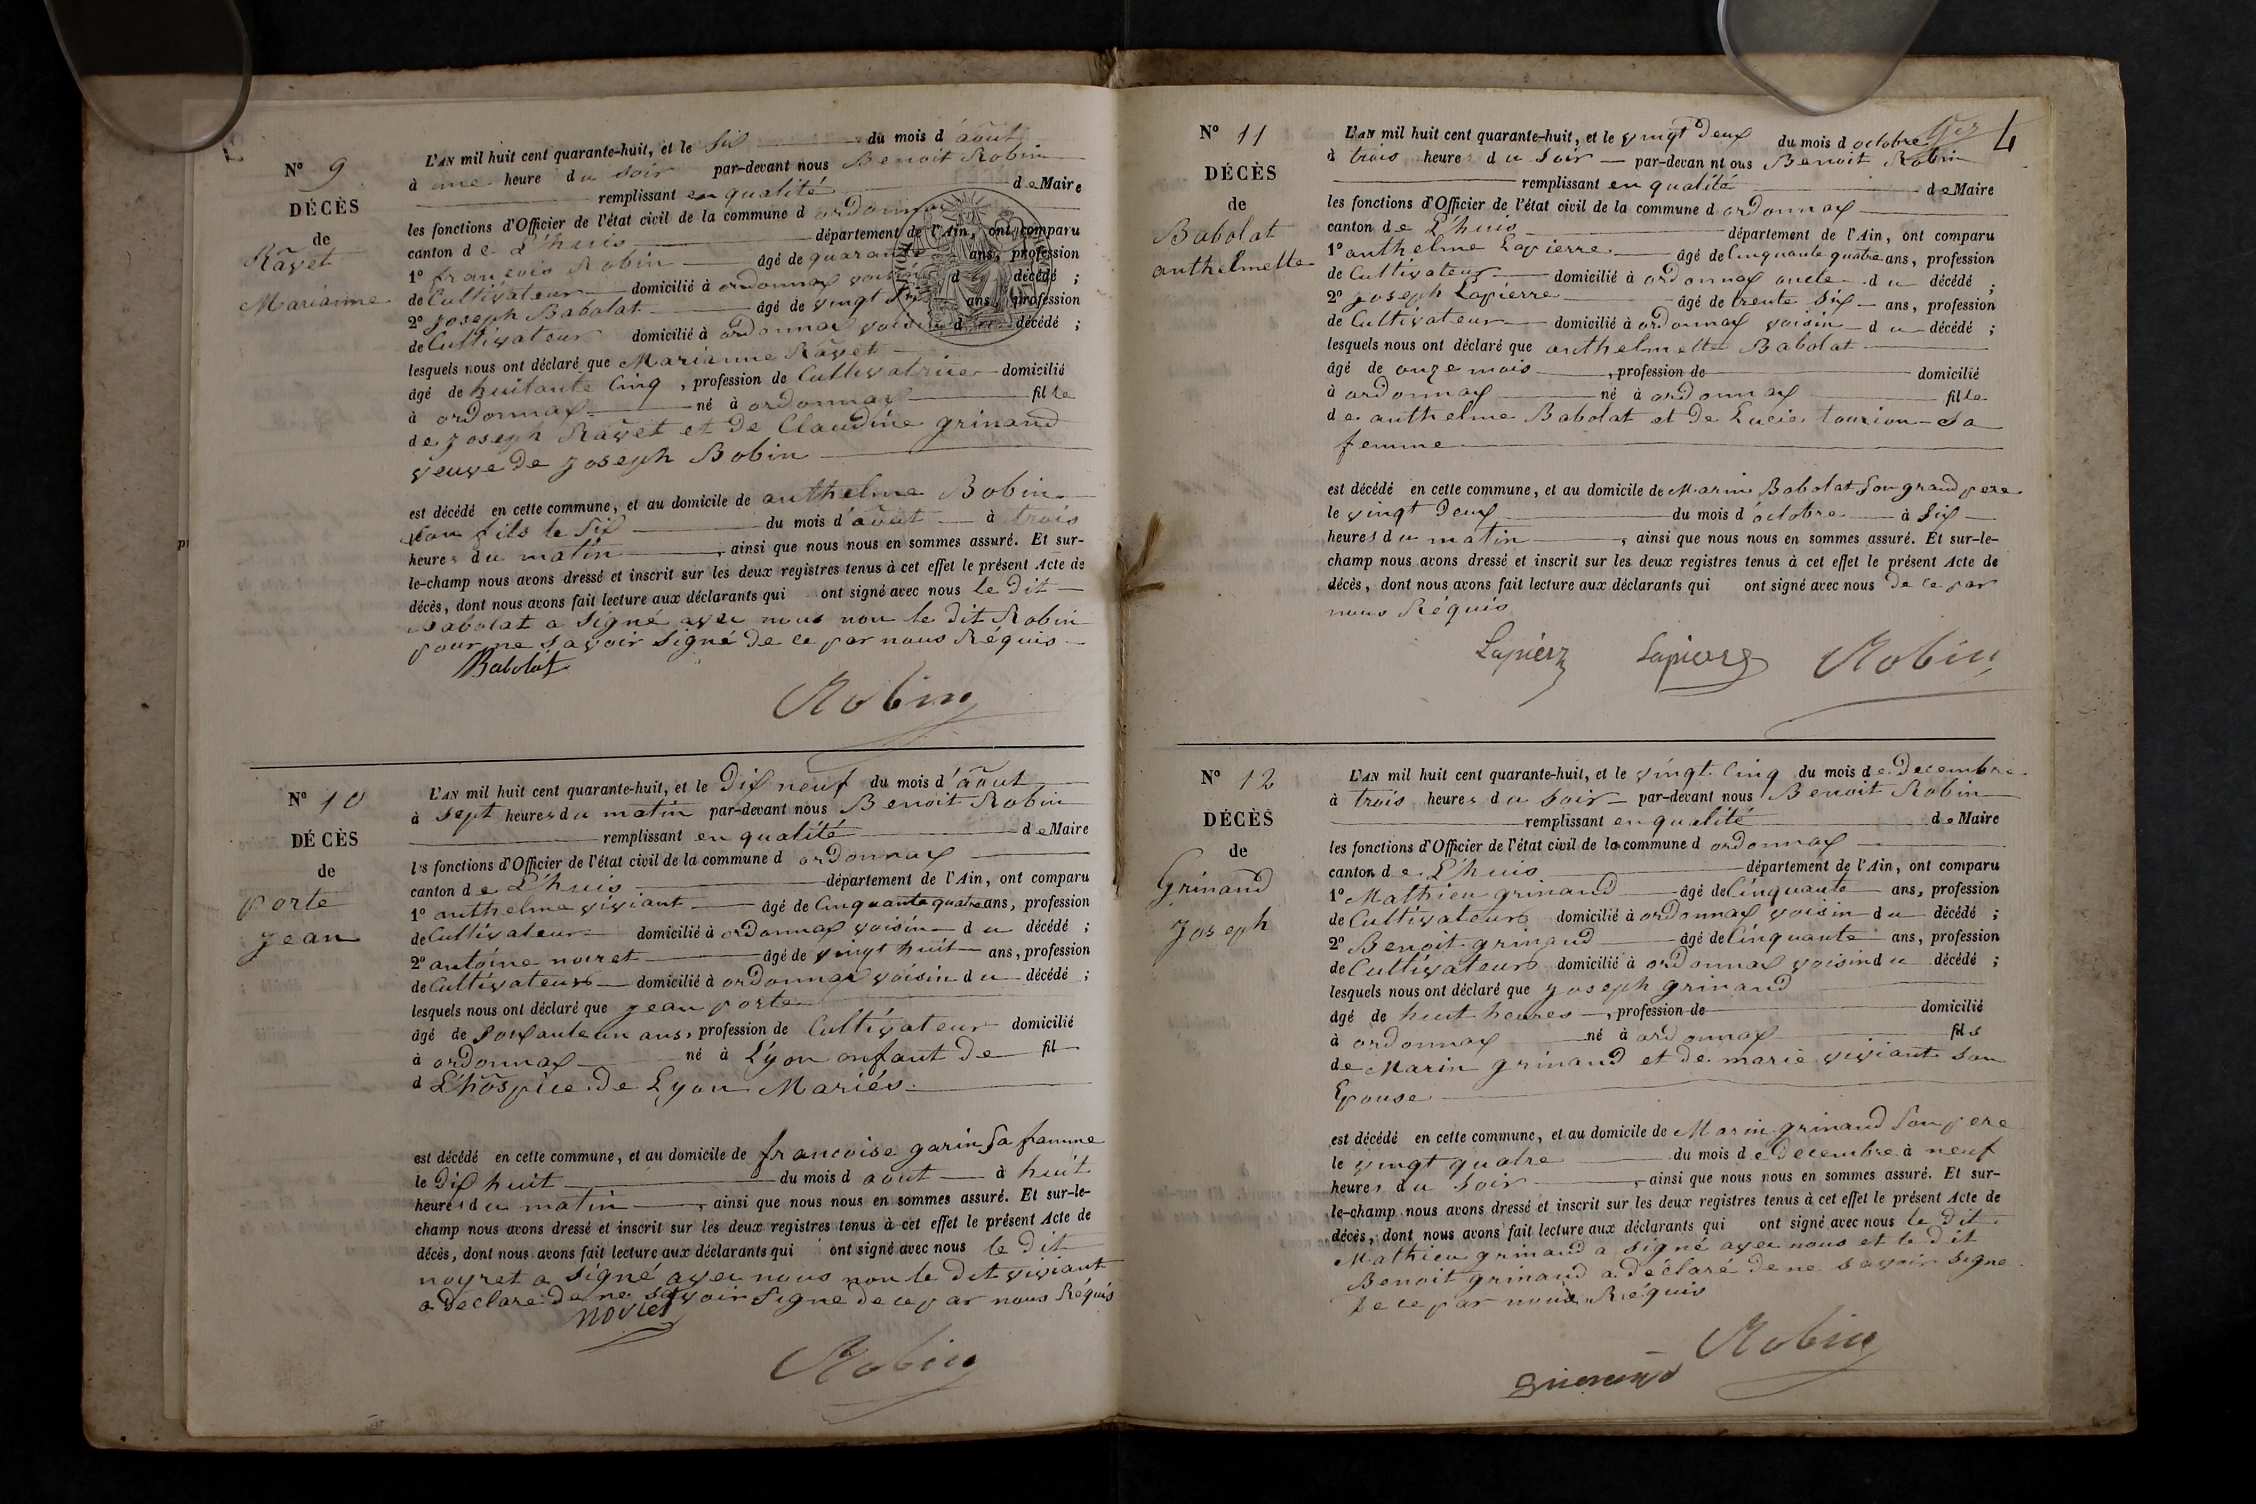 N° 9
DÉCÈS
de
Ravet
Marianne
L'AN mil huit cent quarante-huit, et le six du mois d'août
à une heure du soir par-devant nous Benoit Robin
remplissant en qualité de Maire
les fonctions d'Officier de l'état civil de la commune d ordonnax
canton de L'huis département de l'Ain, ont comparu
1° françois Robin âgé de quarante ans, profession
de Cultivateur domicilié à ordonnax voisin d décédé ;
2° joseph Babolat âgé de vingt six ans, profession
de Cultivateur domicilié à ordonnax voisin d u décédé ;
lesquels nous ont déclaré que Marianne Ravet
âgé de huitante Cinq, profession de Cultivatrice domicilié
à ordonnax né à ordonnax fille
de joseph Ravet et de Claudine grinand
veuve de joseph Bobin
est décédé en cette commune, et au domicile de anthelme Bobin
son fils le six du mois d'août à trois
heures du matin, ainsi que nous nous en sommes assuré. Et sur-
le-champ nous avons dressé et inscrit sur les deux registres tenus à cet effet le présent Acte de
décès, dont nous avons fait lecture aux déclarants qui ont signé avec nous le dit
Babolat a signé avec nous non le dit Robin
pour ne savoir signé de ce par nous Réquis
Babolat
Robin
N° 10
DÉCÈS
de
porte
jean
L'AN mil huit cent quarante-huit, et le Dix neuf du mois d'août
à sept heures du matin par-devant nous Benoit Robin
remplissant en qualité de Maire
les fonctions d'Officier de l'état civil de la commune d ordonnax
canton de L'huis département de l'Ain, ont comparu
1° anthelme viviant âgé de Cinquante quatre ans, profession
de Cultivateur domicilié à ordonnax voisin du décédé ;
2° antoine noiret âgé de vingt huit ans, profession
de Cultivateur domicilié à ordonnax voisin du décédé ;
lesquels nous ont déclaré que jean porte
âgé de soixante un ans, profession de Cultivateur domicilié
à ordonnax né à Lyon enfant de fil
d L'hospice de Lyon Mariés
est décédé en cette commune, et au domicile de francoise garin sa famme
le dix huit du mois d août à huit
heures du matin, ainsi que nous nous en sommes assuré. Et sur-le-
champ nous avons dressé et inscrit sur les deux registres tenus à cet effet le présent Acte de
décès, dont nous avons fait lecture aux déclarants qui ont signé avec nous le dit
noyret a signé avec nous non le dit viviant
a déclaré de ne savoir signe de ce par nous Réquis
Robin
4
N° 11
DÉCÈS
de
Babolat
anthelmette
L'AN mil huit cent quarante-huit, et le vingt deux du mois d octobre
à trois heures du soir par-devan nt ous Benoit Robin
remplissant en qualité de Maire
les fonctions d'Officier de l'état civil de la commune d ordonnax
canton de L'huis département de l'Ain, ont comparu
1° anthelme Lapierre âgé de Cinquante quatre ans, profession
de Cultivateur domicilié à ordonnax oncle du décédé ;
2° joseph Lapierre âgé de trente six ans, profession
de Cultivateur domicilié à ordonnax voisin du décédé ;
lesquels nous ont déclaré que anthelmette Babolat
âgé de onze mois, profession de domicilié
à ordonnax né à ordonnax fille
de anthelme Babolat et de Lucie tourion sa
femme
est décédé en cette commune, et au domicile de Marin Babolat son grand pere
le vingt deux du mois d'octobre à six
heures du matin, ainsi que nous nous en sommes assuré. Et sur-le-
champ nous avons dressé et inscrit sur les deux registres tenus à cet effet le présent Acte de
décès, dont nous avons fait lecture aux déclarants qui ont signé avec nous de ce par
nous Réquis
Lapierre Lapierre Robin
N° 12
DÉCÈS
de
Grinand
joseph
L'AN mil huit cent quarante-huit, et le vingt Cinq du mois de Decembre
à trois heures du soir par-devant nous Benoit Robin
remplissant en qualité de Maire
les fonctions d'Officier de l'état civil de la commune d ordonnax
canton de L'huis département de l'Ain, ont comparu
1° Mathieu grinand âgé de Cinquante ans, profession
de Cultivateur domicilié à ordonnax voisin du décédé ;
2° Benoit grinand âgé de Cinquante ans, profession
de Cultivateur domicilié à ordonnax voisin du décédé ;
lesquels nous ont déclaré que joseph grinand
âgé de huit heures, profession de domicilié
à ordonnax né à ordonnax fils
de Marin grinand et de marie viviant son
Epouse
est décédé en cette commune, et au domicile de Marin grinand son pere
le vingt quatre du mois de Decembre à neuf
heures du soir, ainsi que nous nous en sommes assuré. Et sur-
le-champ nous avons dressé et inscrit sur les deux registres tenus à cet effet le présent Acte de
décès, dont nous avons fait lecture aux déclarants qui ont signé avec nous le dit
Mathieu grinand a signé avec nous et le dit
Benoit grinand a déclaré de ne savoir signe
de ce par nous Réquis
Robin